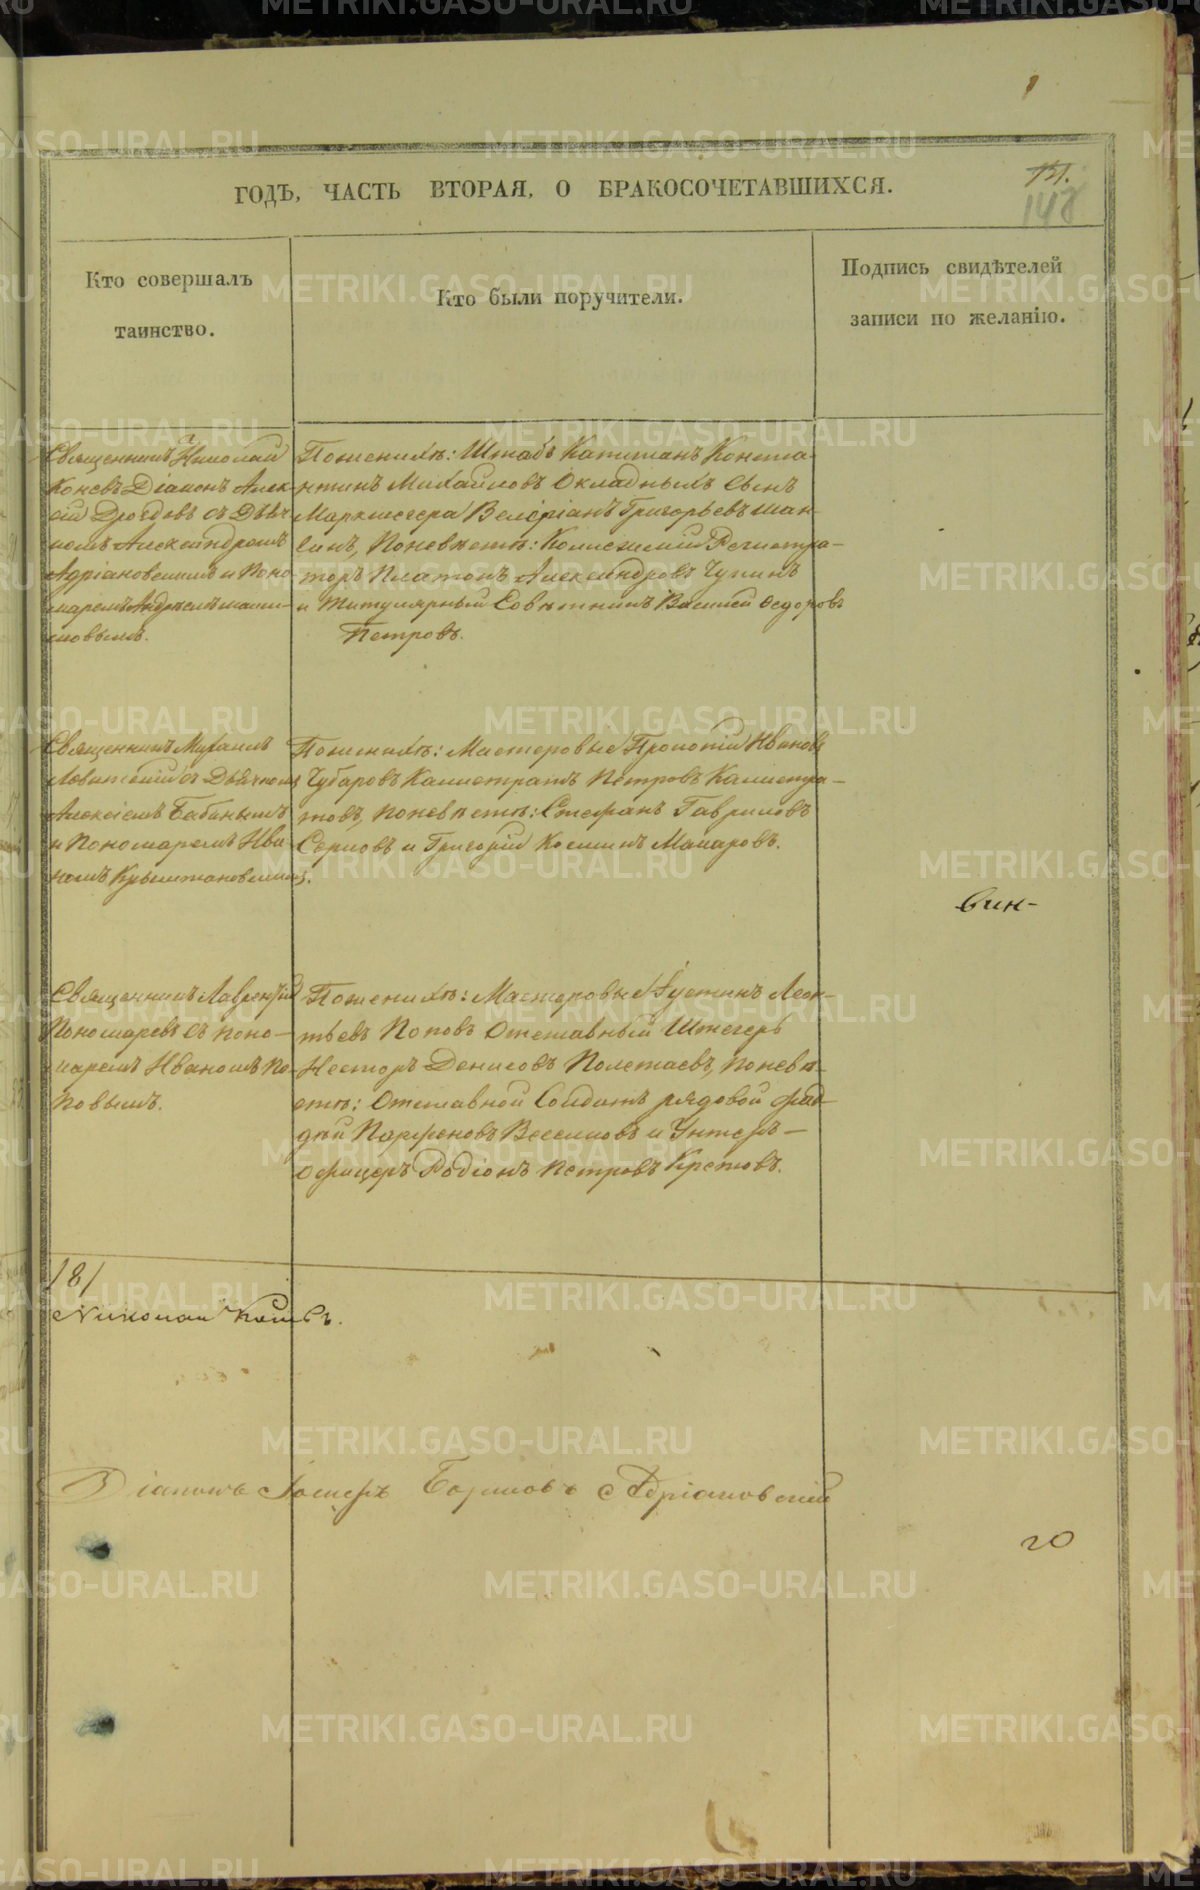 ГОДЪ, ЧАСТЬ ВТОРАЯ, О БРАКОСОЧЕТАВШИХСЯ.
151.
148
Кто совершалъ
таинство.
Кто были поручители.
Подпись свидѣтелей
записи по желанію.
Священникъ Николай
Коневъ Діаконъ Алек-
сій Дроздовъ съ Дьяч-
комъ Александромъ
Адріановскимъ и Поно-
маремъ Андреемъ
Поженихѣ: Штабъ Капитанъ Конста-
нтинъ Михайловъ Окладныхъ Сынъ
Маркшегера Валеріанъ Григорьевъ Шан-
гинъ, Поневѣстѣ: Коллежскій Регистра-
торъ Платонъ Александровъ Чупинъ
и Титулярный Совѣтникъ Василій Ѳедоровъ
Петровъ.
Священникъ Михаилъ
Левитскій съ Дьячкомъ
Алексіемъ Бабинымъ
и Пономаремъ Ива-
номъ
Поженихѣ: Мастеровые Прокопій Ивановъ
Чубаровъ Калистратъ Петровъ Калистра-
товъ, Поневѣстѣ: Стефанъ Гавриловъ
Серковъ и Григорій Косминъ Макаровъ.
вин-
Священникъ Лаврентій
Пономаревъ съ Поно-
маремъ Иваномъ По-
повымъ.
Поженихѣ: Мастеровые Іустинъ Леон-
тьевъ Поповъ Отставный Штегеръ
Несторъ Денисовъ Полетаевъ, Поневѣ-
стѣ: Отставной Солдатъ рядовой Фад-
дѣй Парфеновъ Веселковъ и Унтеръ-
Офицеръ Родіонъ Петровъ Кретовъ.
181
Николай Коневъ.
Діаконъ Адріановскій
го
METRIKI.GASO-URAL.RU